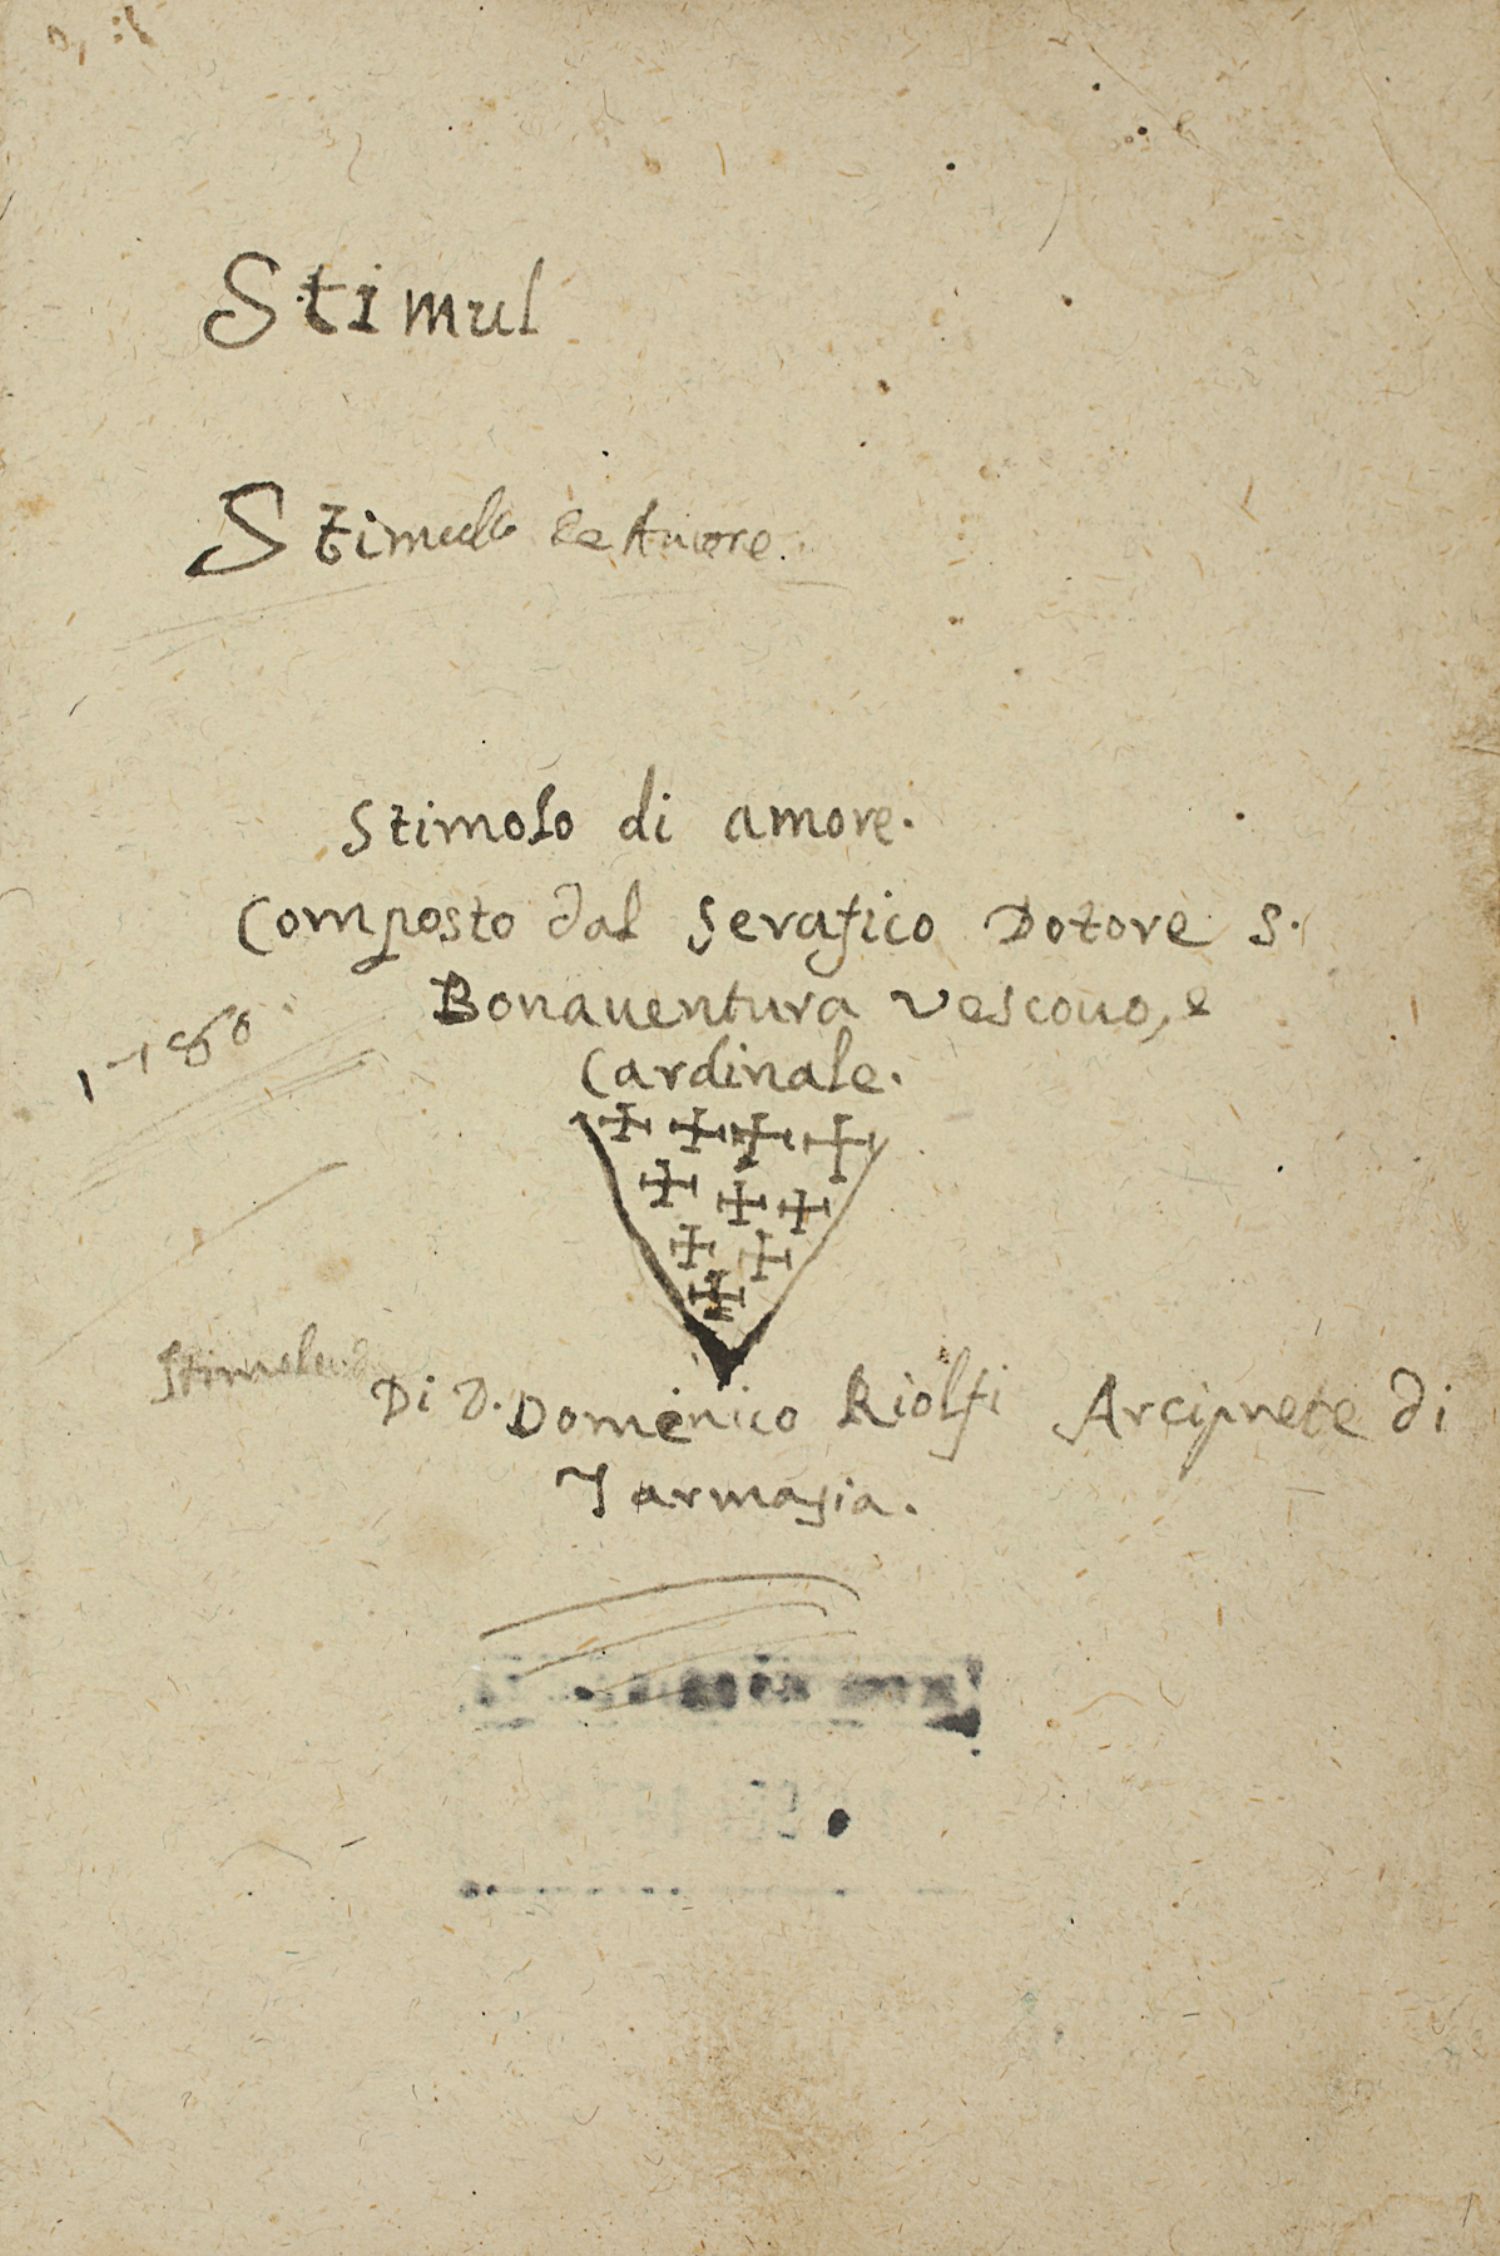 Stimul
Stimullo de Amore.
Stimolo di amore.
Composto dal Serafico Dotore S.
Bonauentura Vescouo, e
Cardinale.
1780
Di D. Domenico Riolfi Arciprete di
Tarmasia.